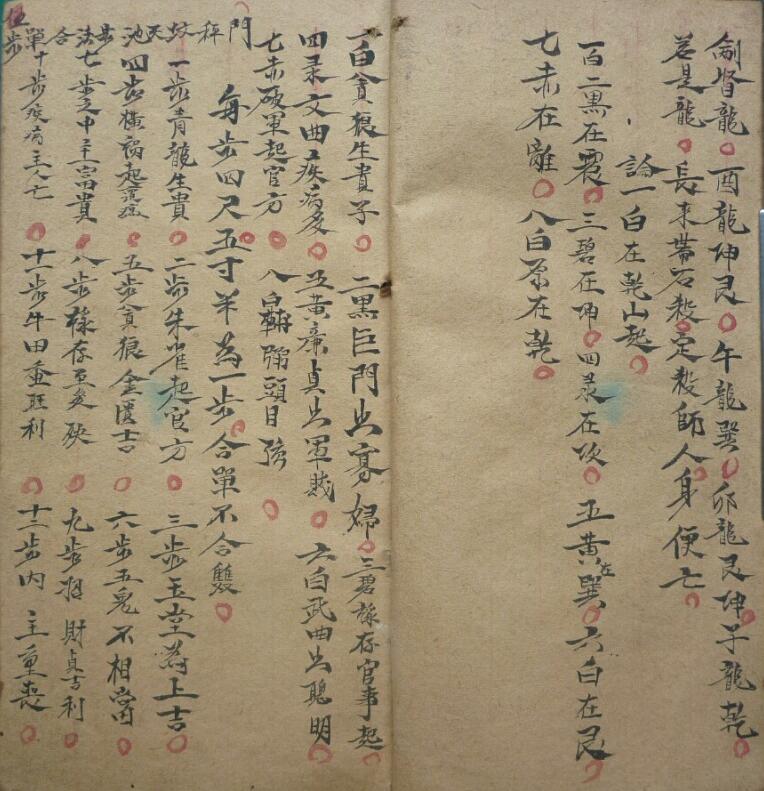 督龍 酉龍坤艮 午龍巽 卯龍艮坤子龍乾
若是龍 長來帶石殺定殺師人身便亡
論一白在乾山起
一百二黒在震 三碧在坤 四录在坎 五黃在巽 六白在艮
七赤在離 八白原在乾
一白貪狼生貴子 二黒巨門出寡婦 三碧祿存官事起
四录文曲疾病多 五黃廉貞出軍賊 六白武曲出聰明
七赤破軍起官方 八白輔弼頭目強
每步四尺五寸羊為一步合單不合雙
門秤坟天池步法合單步
一步青龍生貴 二步朱雀起官方 三步玉堂為上吉
四步橫禍起瘟疫 五步貪狼金匱吉 六步五鬼不相當
七步之中主富貴 八步祿存 九步招財貞吉利
十步疾病主人亡 十一步牛田蚕旺利 十二步內主重喪